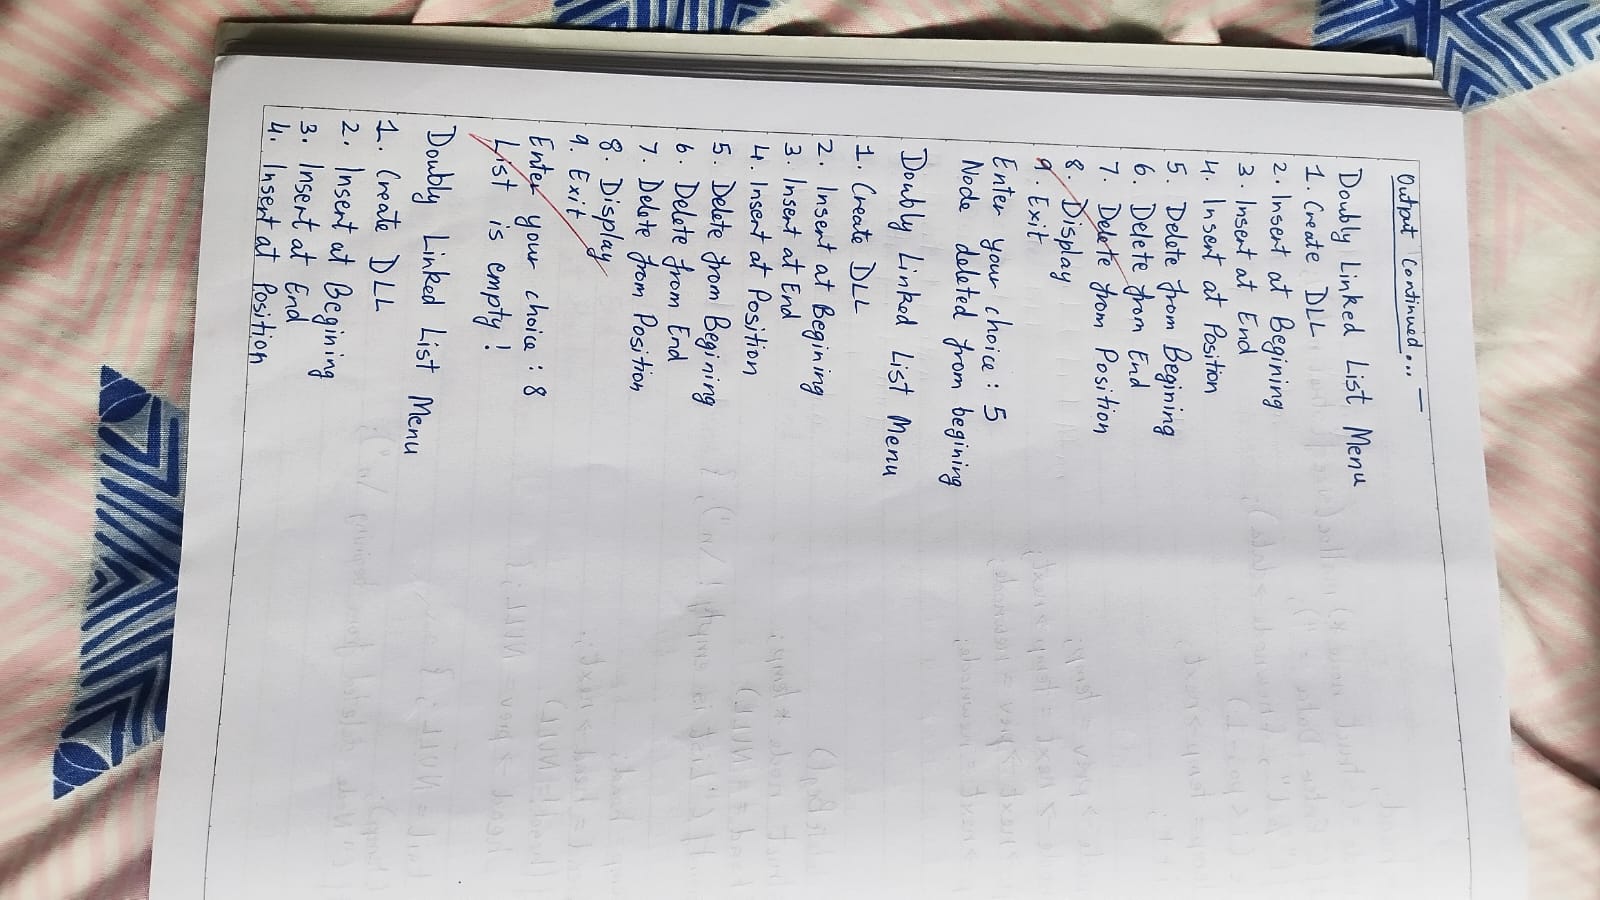 Output continued...
Doubly Linked List Menu
1. Create DLL
2. Insert at Begining
3. Insert at End
4. Insert at Position
5. Delete from Begining
6. Delete from End
7. Delete from Position
8. Display
9. Exit
Enter your choice : 5
Node deleted from begining
Doubly Linked List Menu
1. Create DLL
2. Insert at Begining
3. Insert at End
4. Insert at Position
5. Delete from Begining
6. Delete from End
7. Delete from Position
8. Display
9. Exit
Enter your choice : 8
List is empty!
Doubly Linked List Menu
1. Create DLL
2. Insert at Begining
3. Insert at End
4. Insert at Position